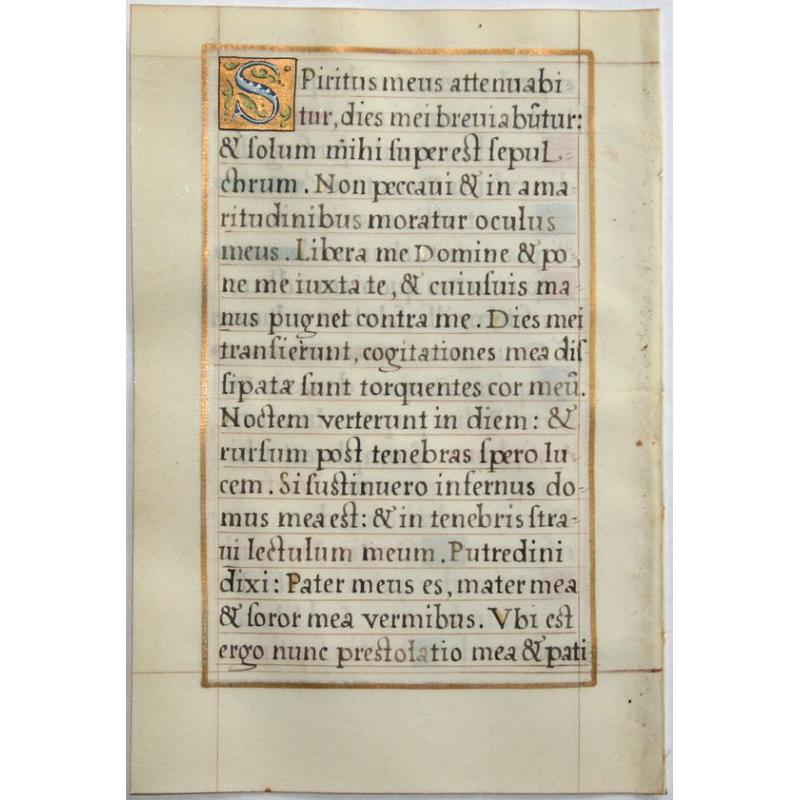 SPiritus meus attenuabi-
tur, dies mei breuiabũtur:
& ſolum mihi ſupereſt ſepul-
chrum. Non peccaui & in ama-
ritudinibus moratur oculus
meus. Libera me Domine & po-
ne me iuxta te, & cuiuſuis ma-
nus pugnet contra me. Dies mei
tranſierunt, cogitationes mea diſ-
ſipatæ ſunt torquentes cor meũ.
Noctem verterunt in diem: &
rurſum poſt tenebras ſpero lu-
cem. Si ſuſtinuero infernus do-
mus mea eſt: & in tenebris ſtra-
ui lectulum meum. Putredini
dixi: Pater meus es, mater mea
& ſoror mea vermibus. Vbi eſt
ergo nunc preſtolatio mea & pati